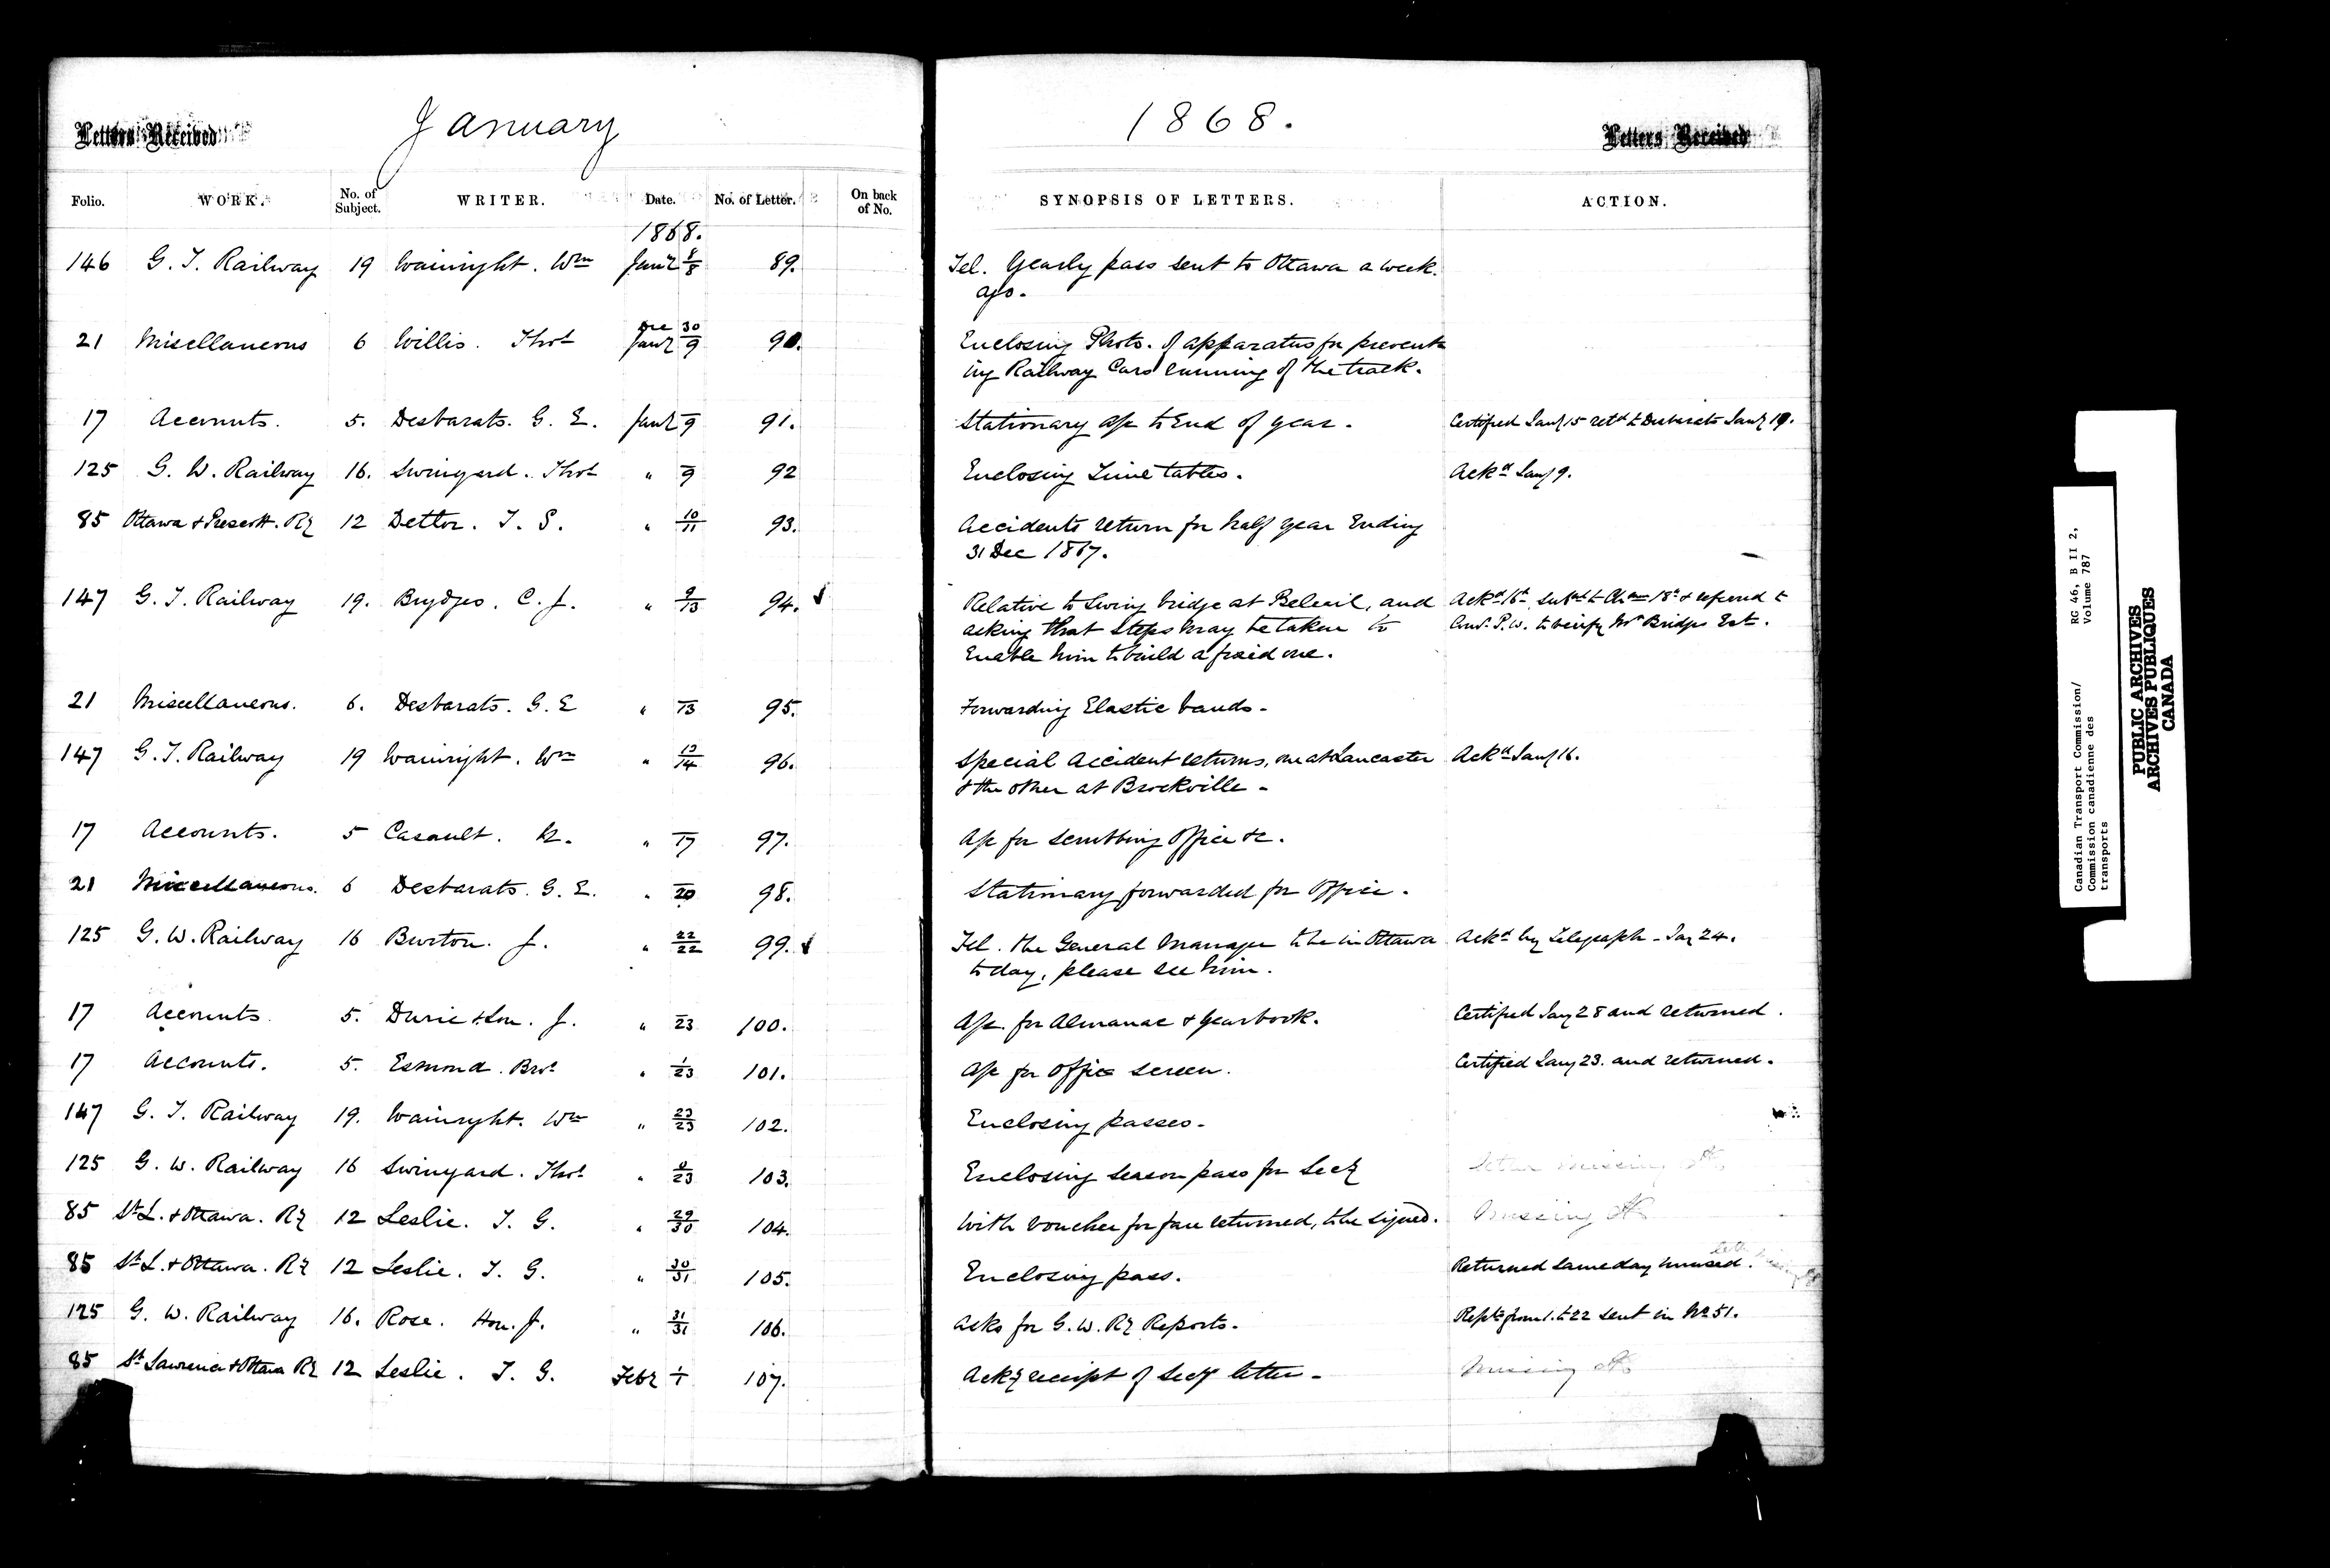 Letters Received
January
1868.
Letters Received
Folio. WORK. No. of Subject. WRITER. Date. No. of Letter. On back of No. SYNOPSIS OF LETTERS. ACTION.
1868.
146 G. T. Railway 19 Wainright. Wm Jany 8/8 89. Tel. Yearly pass sent to Ottawa a week
ago.
21 Miscellaneous 6 Willis. Thos Dec 30 Jany 9 90. Enclosing Photo. of apparatus for prevent
ing Railway Cars running of the track.
17 Accounts. 5. Desbarats. G. E. Jany 9 91. Stationary a/c to End of year. Certified Jany 15 retd to Desbarats Jany 19.
125 G. W. Railway 16. Swinyard. Thos " 9 92 Enclosing Time tables. Ackd Jany 9.
85 Ottawa & Prescott. Ry 12 Dettor. T. S. " 10/11 93. Accidents return for half year Ending
31 Dec 1867.
147 G. T. Railway 19. Brydges. C. J. " 9/13 94. Relative to Swing bridge at Belœil, and Ackd 16th subd to Chn 18th & refered to
asking that steps may be taken to Com. P.W. to verify Mr Bridges Est.
Enable him to build a fixed one.
21 Miscellaneous. 6. Desbarats. G. E " 13 95. Forwarding Elastic bands -
147 G. T. Railway 19 Wainright. Wm " 13/14 96. Special Accident returns, one at Lancaster Ackd Jany 16.
& the other at Brockville -
17 Accounts. 5 Casault. " 17 97. A/c for scrubbing Office &c.
21 Miscellaneous. 6 Desbarats. G. E. " 20 98. Stationary forwarded for Office.
125 G. W. Railway 16 Burton. J. " 22/22 99. Tel. the General Manager to be in Ottawa Ackd by Telegraph - Jay 24.
today, please see him.
17 Accounts. 5. Durie & Son. J. " 23 100. A/c. for Almanac & Yearbook. Certified Jany 28 and returned.
17 Accounts. 5. Esmond. Bros " 1/23 101. A/c for Office screen. Certified Jany 23. and returned.
147 G. T. Railway 19. Wainryht. Wm " 23/23 102. Enclosing passes -
125 G. W. Railway 16 Swinyard. Thos " 23 103. Enclosing season pass for Secy letter missing
85 St L. & Ottawa. Ry 12 Leslie. T. G. " 29/30 104. With voucher for fare returned, to be signed. Missing
85 St L. & Ottawa. Ry 12 Leslie. T. G. " 30/31 105. Enclosing pass. Returned same day unused.
125 G. W. Railway 16. Rose. Hon. J. " 31/31 106. Asks for G. W. Ry Reports. Repts from 1. to 22 sent in No 51.
85 St Lawrence & Ottawa Ry 12 Leslie. T. G. Feby 1/1 107. Ackg receipt of Secy letter - Missing
Canadian Transport Commission/
Commission canadienne des
transports
RG 46, B II 2,
Volume 787
PUBLIC ARCHIVES
ARCHIVES PUBLIQUES
CANADA